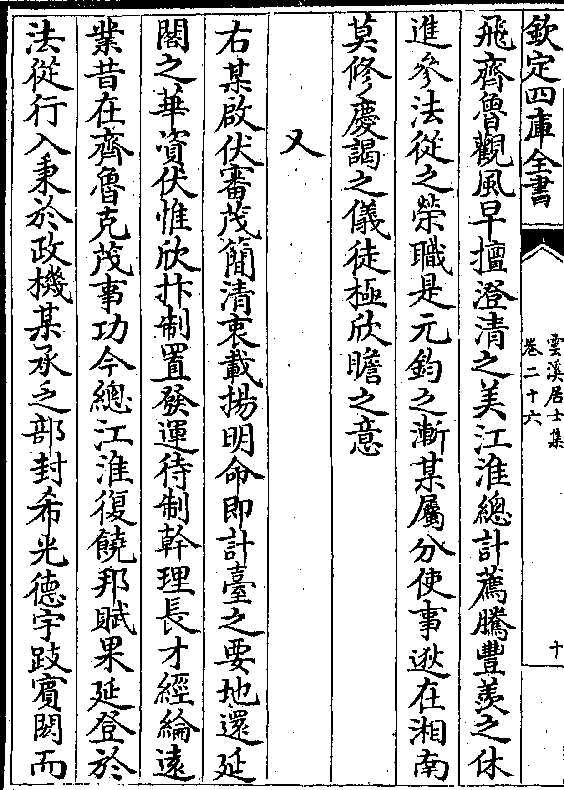 欽定四庫全書
雲溪居士集
卷二十六
十
飛齊魯觀風早擅澄清之美江淮總計薦騰豐羨之休
進參法從之榮職是元鈞之漸某屬分使事逖在湘南
莫修慶謁之儀徒極欣瞻之意
又
右某啟伏審茂簡清衷載揚明命即計臺之要地還延
閣之華資伏惟欣抃制置發運待制幹理長才經綸遠
業昔在齊魯克茂事功今總江淮復饒邦賦果延登於
法從行入秉於政機某承乏部封希光德宇跂賓閎而